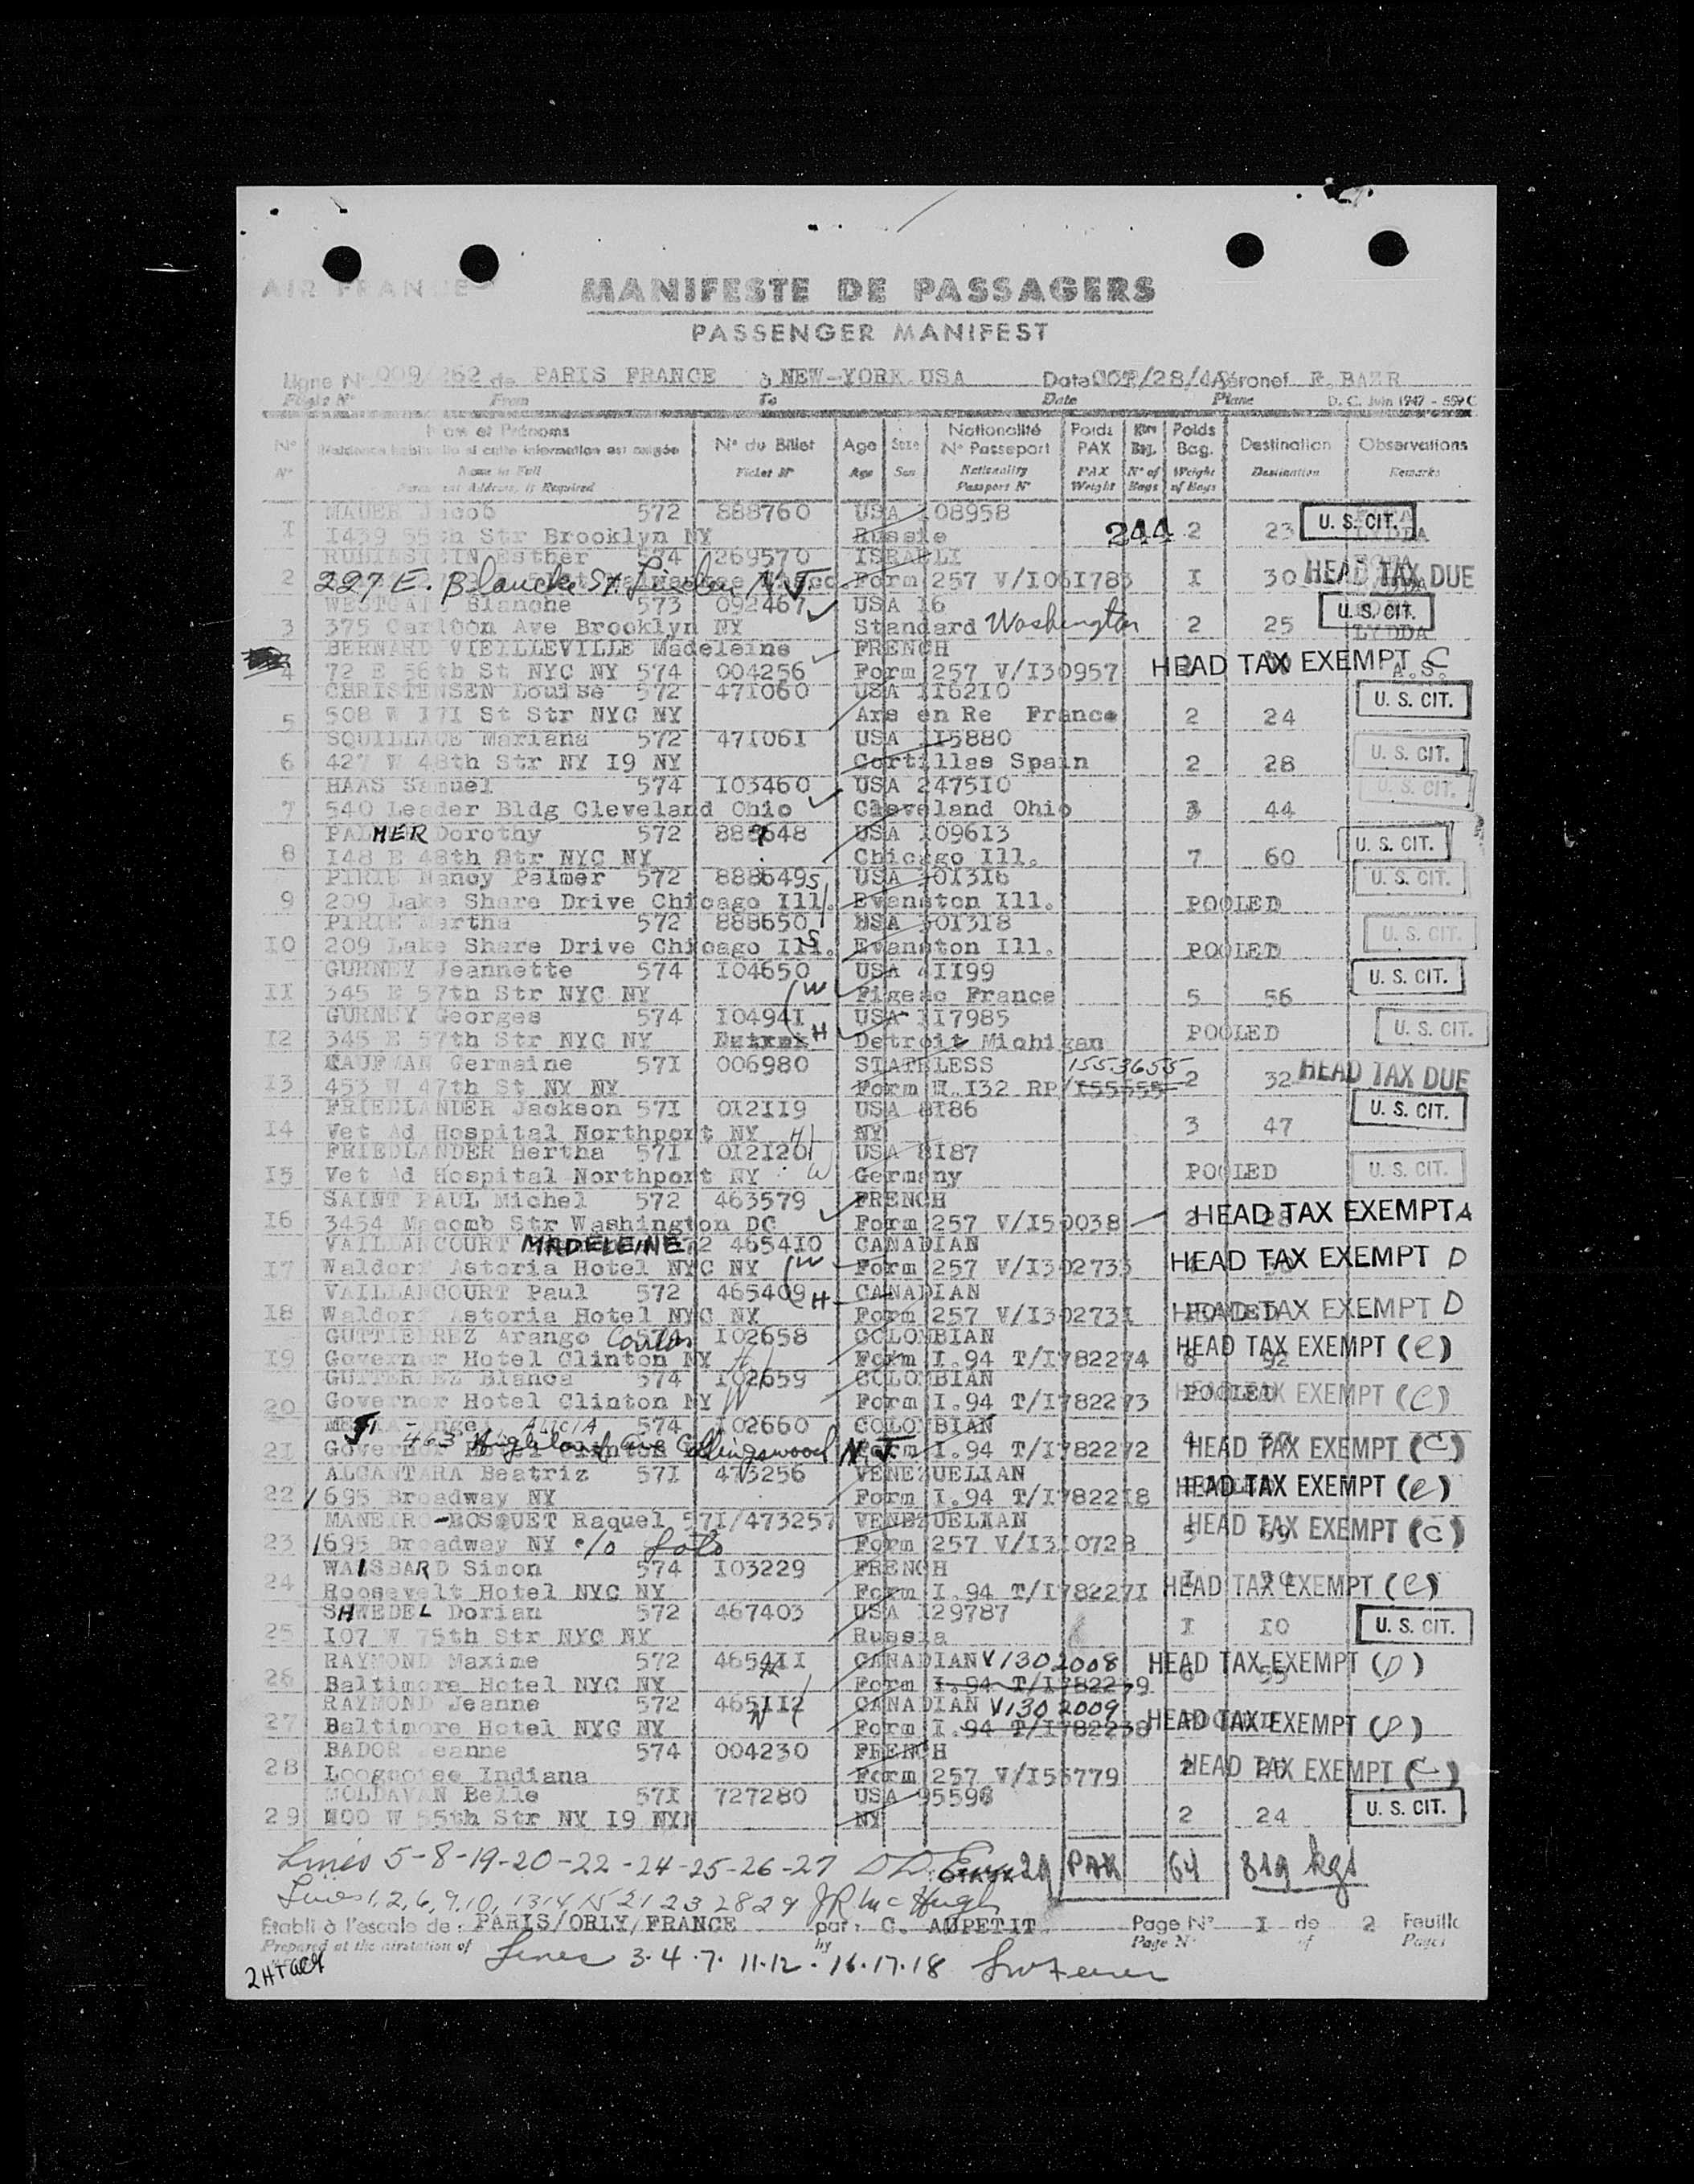 AIR FRANCE
MANIFESTE DE PASSAGERS
PASSENGER MANIFEST
Ligne N° 009/262 de PARIS FRANCE à NEW-YORK USA Date OCT/28/48 Aéronef F.BAZR
Flight N° From To Date Plane D. C. Juin 1947 - 559 C
N° Nom et Prénoms N° du Billet Age Sexe Nationalité N° Passeport Poids PAX Nbre Bag. Poids Bag. Destination Observations
N° Name in Full Ticket N° Age Sex Nationality Passport N° PAX Weight N° of Bags Weight of Bags Destination Remarks
Permanent Address, if Required
MAUER Jacob 572 888760 USA 108958
1 1439 55th Str Brooklyn NY Russie 244 2 23 U. S. CIT. LYDDA
Esther 574 269570 ISRAELI
2 227 E. Blancke St. Linden N.J. Form 257 V/1061783 1 30 HEAD TAX DUE
WESTGATE Blanche 573 092467 USA 16
3 375 Carlton Ave Brooklyn NY Standard Washington 2 25 U. S. CIT. LYDDA
BERNARD VIEILLEVILLE Madeleine FRENCH
4 72 E 56th St NYC NY 574 004256 Form 257 V/130957 HEAD TAX EXEMPT C A.S.
CHRISTENSEN Louise 572 471060 USA 116210
5 508 W 171 St Str NYC NY Ars en Re France 2 24 U. S. CIT.
SQUILLACE Mariana 572 471061 USA 115880
6 427 W 48th Str NY 19 NY Cortillas Spain 2 28 U. S. CIT.
HAAS Samuel 574 103460 USA 247510
7 540 Leader Bldg Cleveland Ohio Cleveland Ohio 3 44 U. S. CIT.
PALMER Dorothy 572 USA 109613
8 148 E 48th Str NYC NY Chicago Ill. 7 60 U. S. CIT.
PIRIE Nancy Palmer 572 888649 S USA 301316
9 209 Lake Share Drive Chicago Ill. Evanston Ill. POOLED U. S. CIT.
PIRIE Martha 572 888650 S USA 301318
10 209 Lake Share Drive Chicago Ill. Evanston Ill. POOLED U. S. CIT.
GURNEY Jeannette 574 104650 USA 41199
11 345 E 57th Str NYC NY W Figeac France 5 56 U. S. CIT.
GURNEY Georges 574 104941 USA 117985
12 345 E 57th Str NYC NY H Detroit Michigan POOLED U. S. CIT.
KAUFMAN Germaine 571 006980 STATELESS 1553655
13 453 W 47th St NY NY Form H.132 RP/155555 2 32 HEAD TAX DUE
FRIEDLANDER Jackson 571 012119 USA 8186
14 Vet Ad Hospital Northport NY H NY 3 47 U. S. CIT.
FRIEDLANDER Hertha 571 012120 USA 8187
15 Vet Ad Hospital Northport NY W Germany POOLED U. S. CIT.
SAINT PAUL Michel 572 463579 FRENCH
16 3454 Macomb Str Washington DC Form 257 V/150038 HEAD TAX EXEMPT A
VAILLANCOURT MADELEINE 572 465410 CANADIAN
17 Waldorf Astoria Hotel NYC NY W Form 257 V/1302733 HEAD TAX EXEMPT D
VAILLANCOURT Paul 572 465409 CANADIAN
18 Waldorf Astoria Hotel NYC NY H Form 257 V/1302731 HEAD TAX EXEMPT D
GUTTIERREZ Arango Carlos 574 102658 COLOMBIAN
19 Governor Hotel Clinton NY H Form I.94 T/1782274 6 92 HEAD TAX EXEMPT (C)
GUTTEREZ Blanca 574 102659 COLOMBIAN
20 Governor Hotel Clinton NY W Form I.94 T/1782273 POOLED HEAD TAX EXEMPT (C)
Angel ALICIA 574 102660 COLOMBIAN
21 463 Highland Ave Collingswood N.J. Form I.94 T/1782272 4 HEAD TAX EXEMPT (C)
ALCANTARA Beatriz 571 473256 VENEZUELIAN
22 1695 Broadway NY Form I.94 T/1782218 HEAD TAX EXEMPT (C)
MANEIRO-BOSQUET Raquel 571/473257 VENEZUELIAN
23 1695 Broadway NY c/o Form 257 V/1310728 5 69 HEAD TAX EXEMPT (C)
WAISSARD Simon 574 103229 FRENCH
24 Roosevelt Hotel NYC NY Form I.94 T/1782271 HEAD TAX EXEMPT (C)
SHWEDEL Dorian 572 467403 USA 129787
25 107 W 75th Str NYC NY Russia 1 10 U. S. CIT.
RAYMOND Maxime 572 465411 CANADIAN V/302008
26 Baltimore Hotel NYC NY H Form I.94 T/1782239 6 55 HEAD TAX EXEMPT (D)
RAYMOND Jeanne 572 465112 CANADIAN V1302009
27 Baltimore Hotel NYC NY W Form I.94 T/1782238 HEAD TAX EXEMPT (D)
BADOR Jeanne 574 004230 FRENCH
28 Loogootee Indiana Form 257 V/155779 2 HEAD TAX EXEMPT (C)
MOLDAVAN Belle 571 727280 USA 95596
29 W 55th Str NY 19 NY NY 2 24 U. S. CIT.
Lines 5-8-19-20-22-24-25-26-27 29 PAX 64 819 kgs
Lines 1, 2, 6, 9, 10, 13 14 15 21 23 28 29 JR McHugh
Etabli à l'escale de: PARIS/ORLY/FRANCE par: C. AUPETIT Page N° 1 de 2 Feuille
Prepared at the airstation of by Page N° of Pages
Lines 3.4.7.11.12.16.17.18